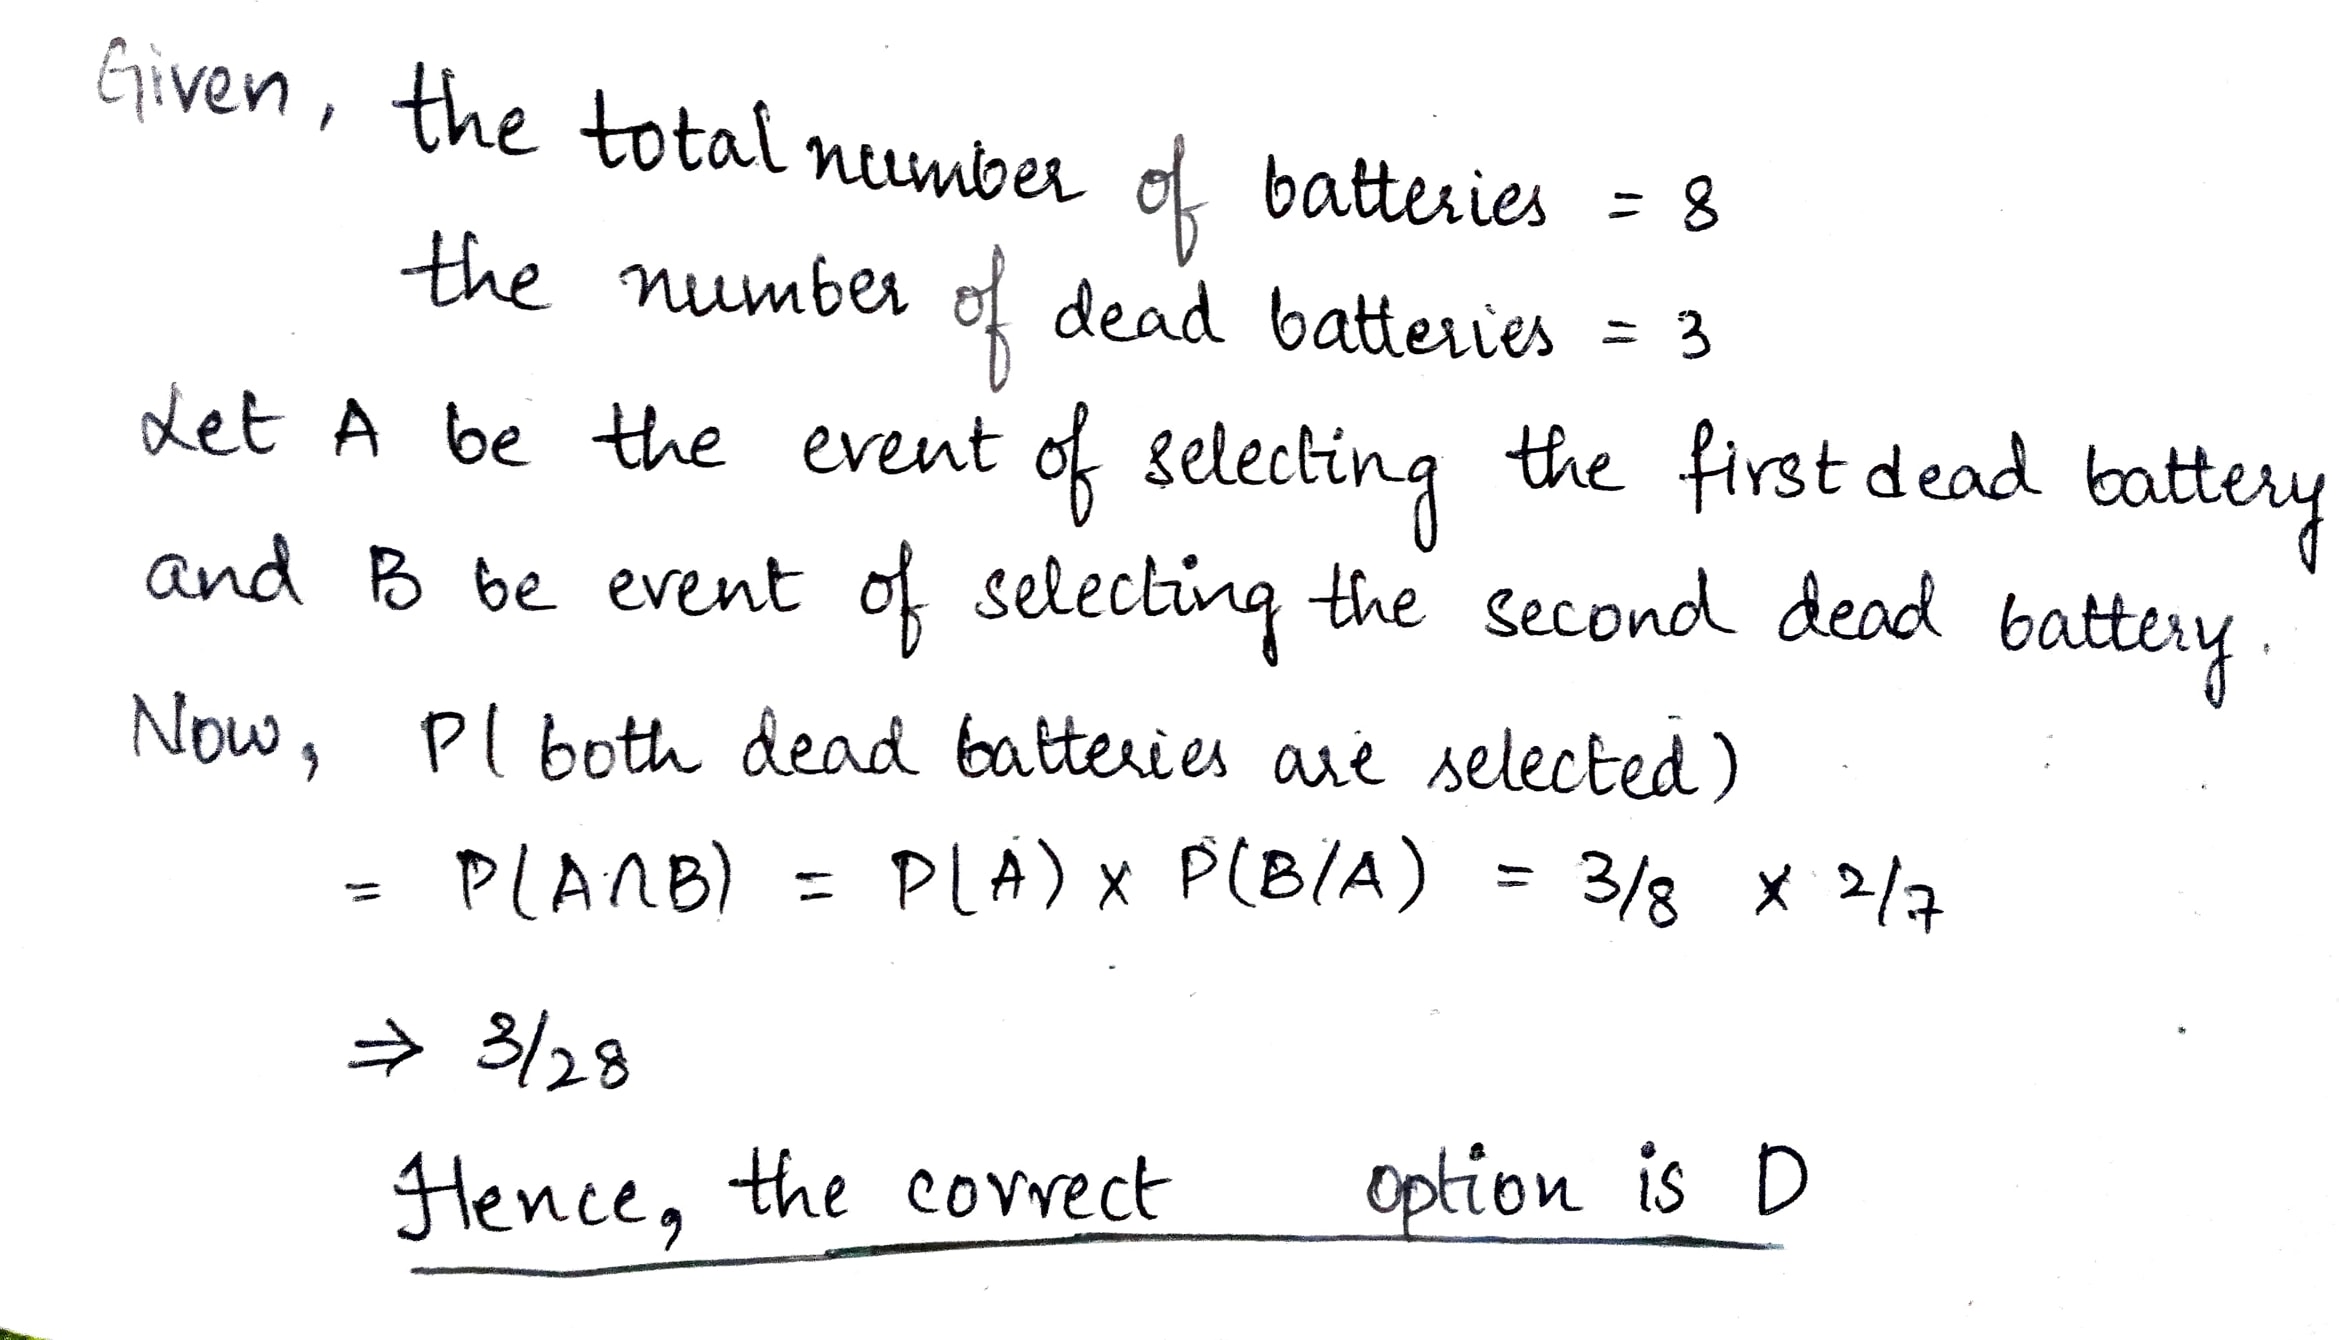 Given, the total number of batteries = 8
the number of dead batteries = 3
Let A be the event of selecting the first dead battery
and B be event of selecting the second dead battery.
Now, P( both dead batteries are selected)
= P(A∩B) = P(A) x P(B/A) = 3/8 x 2/7
⇒ 3/28
Hence, the correct option is D